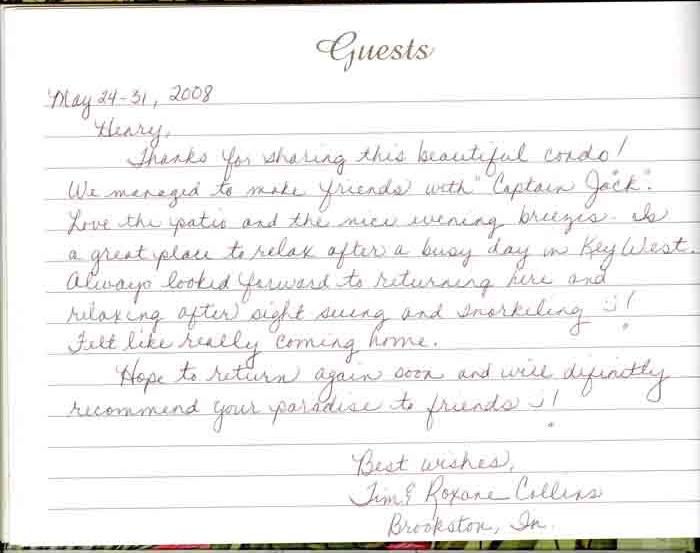 Guests
May 24-31, 2008
Henry,
Thanks for sharing this beautiful condo!
We managed to make friends with "Captain Jack".
Love the patio and the nice evening breezes. Is
a great place to relax after a busy day in Key West.
Always looked forward to returning here and
relaxing after sight seeing and snorkeling :)!
Felt like really coming home.
Hope to return again soon and will difinitly
recommend your paradise to friends :)!
Best wishes,
Jim & Roxane Collins
Brookston, In.